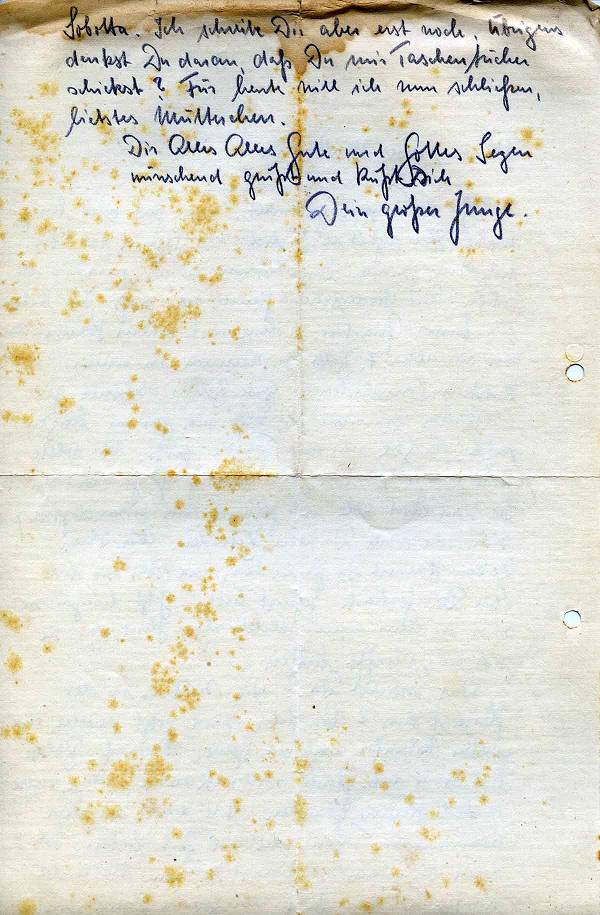 Sobotta. Ich schreibe Dir aber erst noch. Übrigens
denkst Du daran, daß Du mir Taschentücher
schickst? Für heute will ich nun schließen,
liebstes Mutterchen.
Dir Alles Alles Gute und Gottes Segen
wünschend grüßt und küßt Dich
Dein großer Junge.